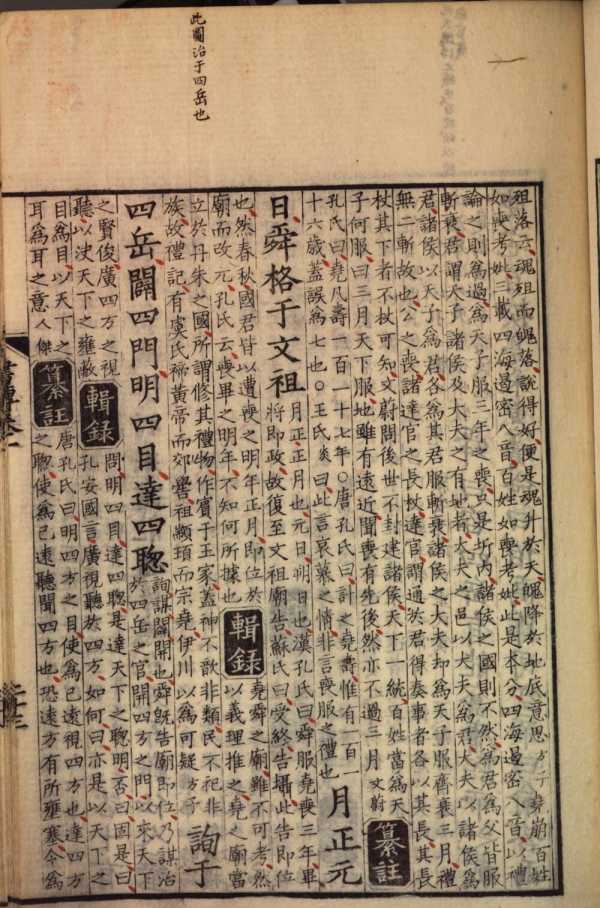 此圖治于四岳也
殂落云魂殂而魄落說得好便是魂升於天魄降於地底意思方子堯崩百姓
如喪考妣三載四海遏密八音百姓如喪考妣此是本分四海遏密八音以禮
論之則為過為天子服三年之喪只是圻內諸侯之國則不然為君為父皆服
斬衰君謂天子諸侯及大夫之有地者大夫之邑以大夫為君大夫以諸侯為
君諸侯以天子為君各為其君服斬衰諸侯之大夫却為天子服齊衰三月禮
無二斬故也公之喪諸達官之長杖達官謂通於君得奏事者各以其長其長
杖其下者不杖可知文蔚問後世不封建諸侯天下一統百姓當為天
子何服曰三月天下服地雖有遠近聞喪有先後然亦不過三月文蔚
纂註
孔氏曰堯凡壽一百一十七年○唐孔氏曰計之堯壽惟有一百一
十六歲蓋誤為七也○王氏炎曰此言哀慕之情非言服之禮也
月正元
日舜格于文祖
月正正月也元日朔日也漢孔氏曰舜服堯喪三年畢
將即政故復至文祖廟告蘇氏曰受終告攝此告即位
也然春秋國君皆以遭喪之明年正月即位於
廟而改元孔氏云喪畢之明年不知何所據也
輯錄
堯舜之廟雖不可考然
以義理推之堯之廟當
立於丹朱之國所謂修其禮物作賓于王家蓋神不歆非類民不祀非
族故禮記有虞氏禘黃帝而郊嚳祖顓頊而宗堯伊川以為可疑方子
詢于
四岳闢四門明四目達四聦
詢謀闢開也舜既告廟即位乃謀治
於四岳之官開四方之門以來天下
之賢俊廣四方之視
聽以决天下之壅蔽
輯錄
問明四目達四聦是達天下之聦明否曰固是曰
孔安國言廣視聽於四方如何曰亦是以天下之
目為目以天下之
耳為耳之意人傑
纂註
唐孔氏曰明四方之目使為己遠視四方也達四方
之聦使為己遠聽聞四方也恐遠方有所壅塞令為